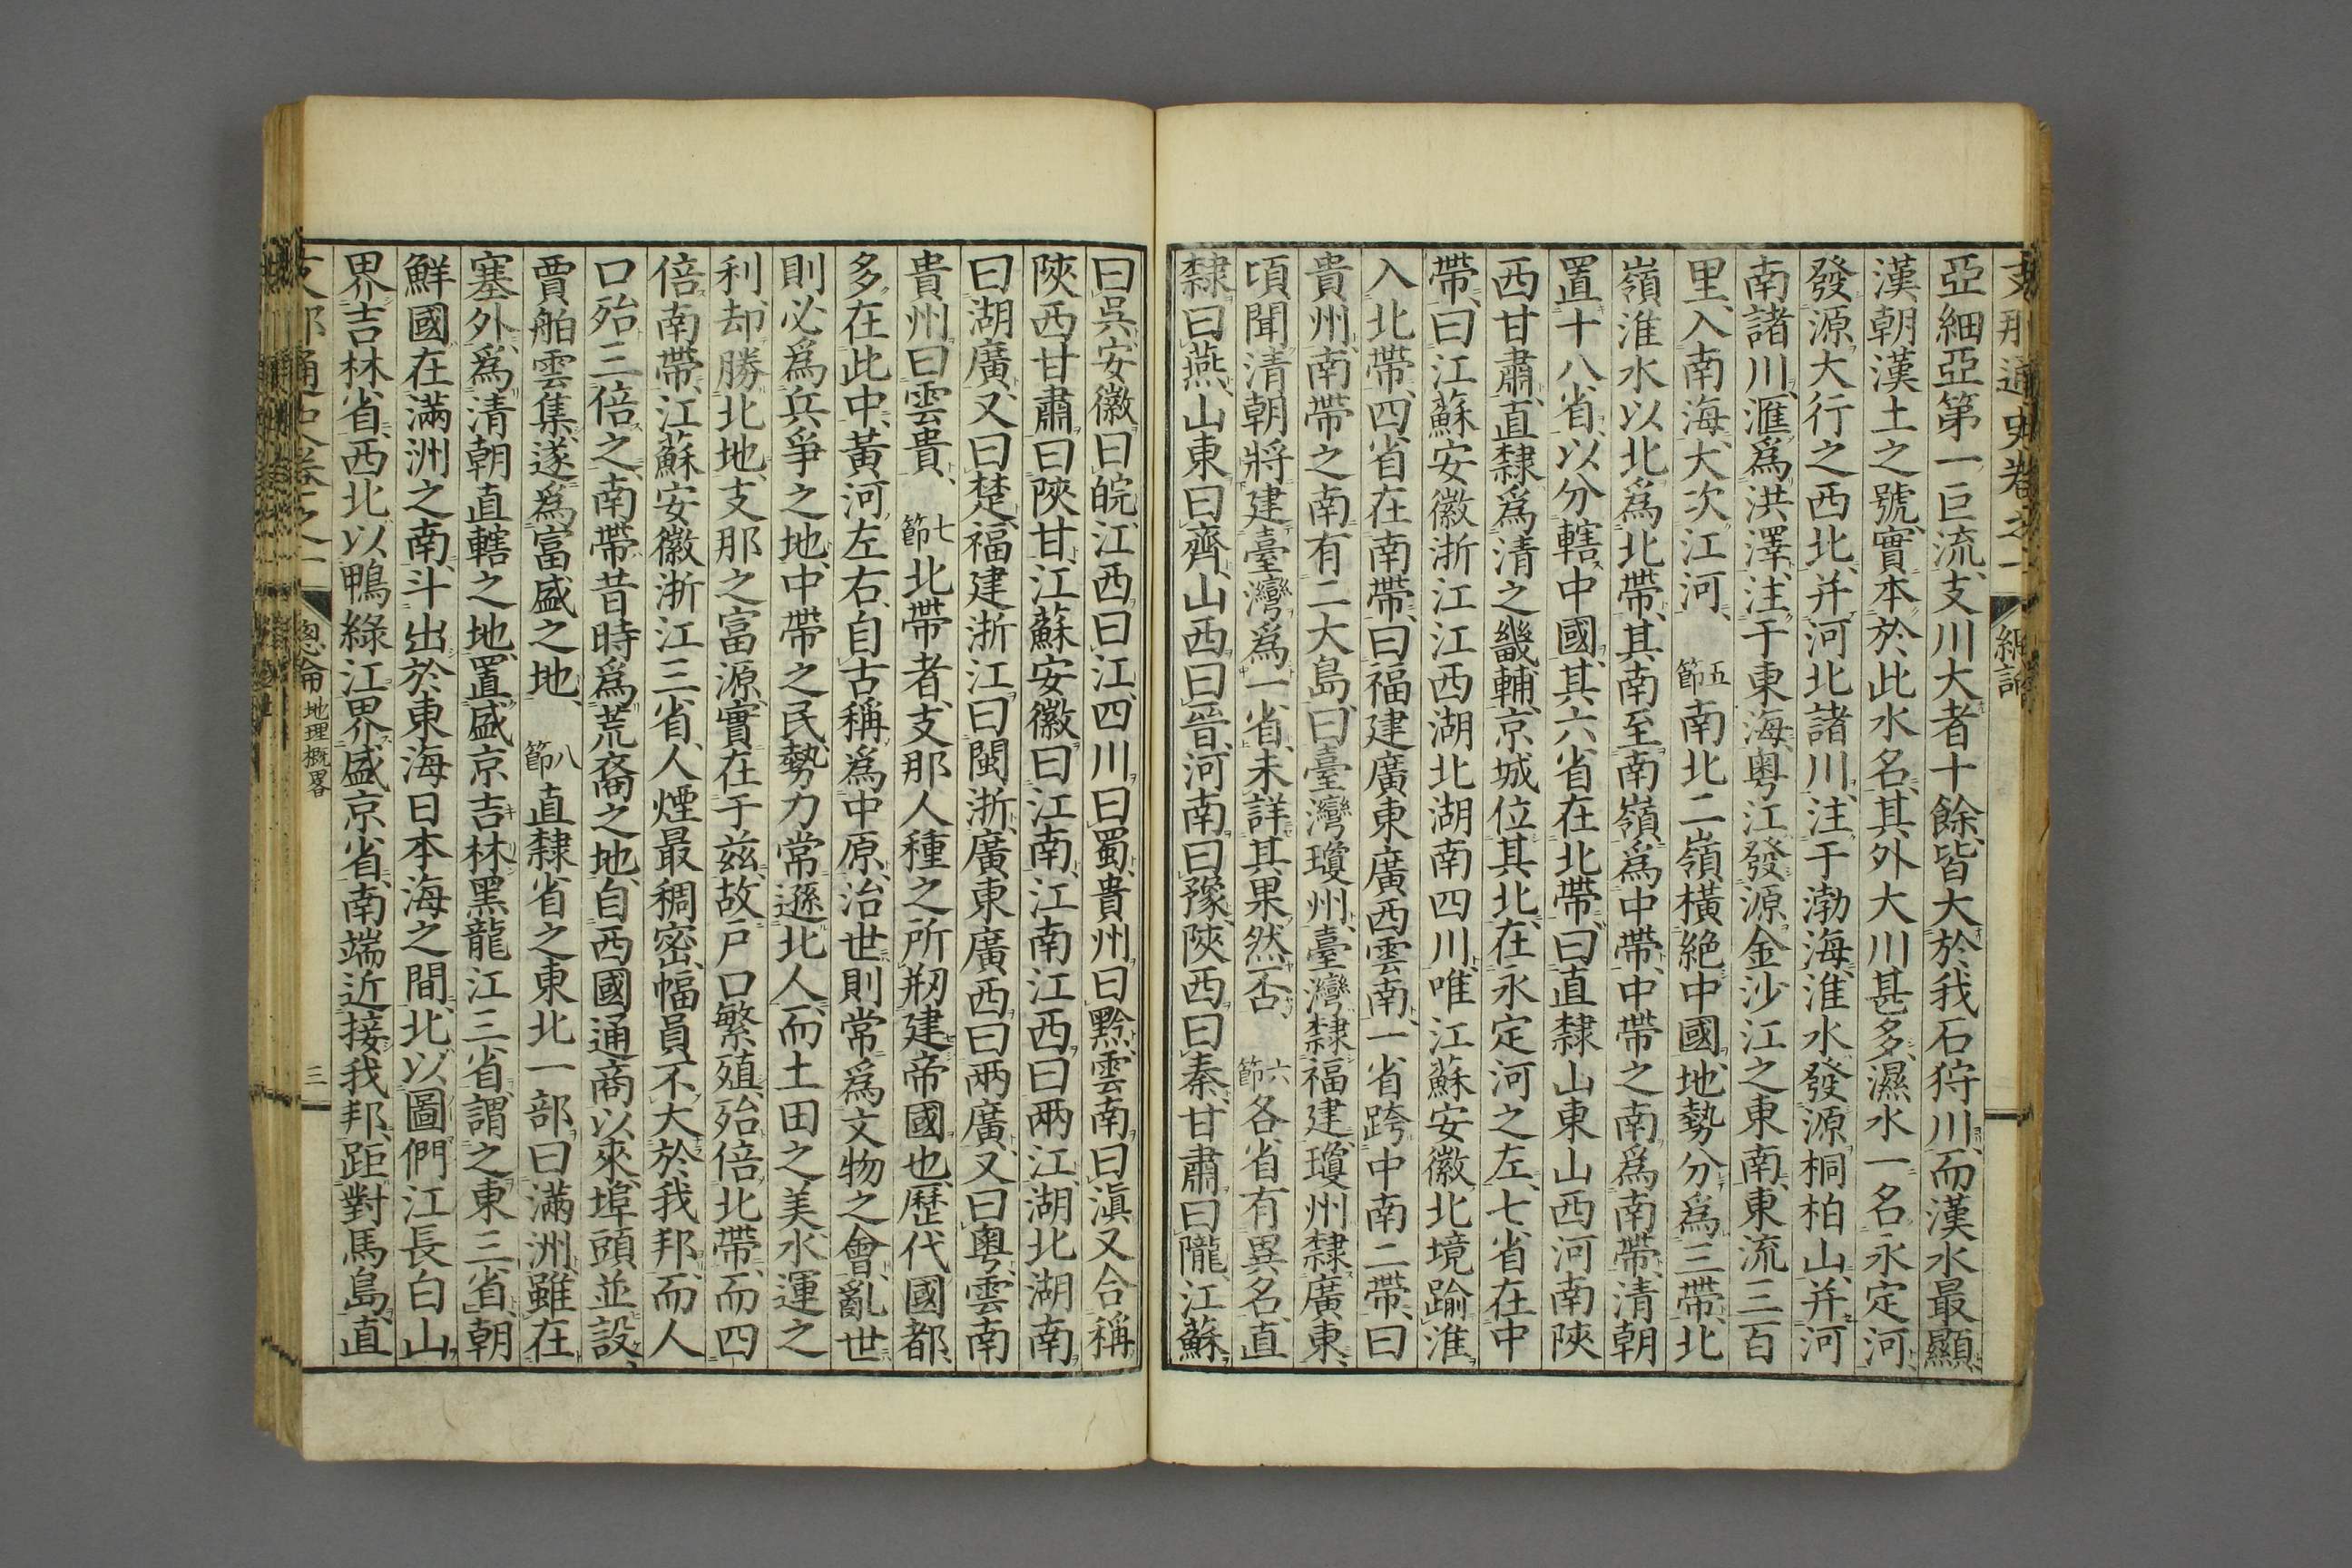 支那通史卷之一
亞細亞第一巨流、支川大者十餘、皆大於我石狩川、而漢水最顯、
漢朝漢土之號、實本於此水名、其外大川甚多、濕水一名永定河、
發源大行之西北、并河北諸川、注于渤海、淮水發源桐柏山、并河
南諸川、滙爲洪澤、注于東海、粵江發源金沙江之東南、東流三百
里、入南海、大次江河、五節南北二嶺橫絶中國、地勢分爲三帶、北
嶺淮水以北爲北帶、其南至南嶺爲中帶、中帶之南爲南帶、清朝
置十八省、以分轄中國、其六省在北帶、曰直隸山東山西河南陝
西甘肅、直隸爲清之畿輔、京城位其北、在永定河之左、七省在中
帶、曰江蘇安徽浙江江西湖北湖南四川、唯江蘇安徽北境踰淮
入北帶、四省在南帶、曰福建廣東廣西雲南、一省跨中南二帶、曰
貴州、南帶之南有二大島、曰臺灣瓊州、臺灣隸福建、瓊州隸廣東、
頃聞清朝將建臺灣爲一省、未詳其果然否、六節各省有異名、直
隸曰燕、山東曰齊、山西曰晉、河南曰豫、陝西曰秦、甘肅曰隴、江蘇
曰吳、安徽曰皖、江西曰江、四川曰蜀、貴州曰黔、雲南曰滇、又合稱
陝西甘肅曰陝甘、江蘇安徽曰江南、江南江西曰兩江、湖北湖南
曰湖廣、又曰楚、福建浙江曰閩浙、廣東廣西曰兩廣、又曰粵、雲南
貴州曰雲貴、七節北帶者、支那人種之所剏建帝國也、歷代國都、
多在此中、黃河左右、自古稱爲中原、治世則常爲文物之會、亂世
則必爲兵爭之地、中帶之民、勢力常遜北人、而土田之美、水運之
利、却勝北地、支那之富源、實在于茲、故戶口繁殖、殆倍北帶、而四
倍南帶、江蘇安徽浙江三省、人煙最稠密、幅員不大於我邦、而人
口殆三倍之、南帶昔時爲荒裔之地、自西國通商以來、埠頭並設、
賈舶雲集、遂爲富盛之地、八節直隸省之東北一部曰滿洲、雖在
塞外、爲清朝直轄之地、置盛京吉林黑龍江三省、謂之東三省、朝
鮮國在滿洲之南、斗出於東海日本海之間、北以圖們江長白山
界吉林省、西北以鴨綠江界盛京省、南端近接我邦、距對馬島、直
總論 地理概畧
三